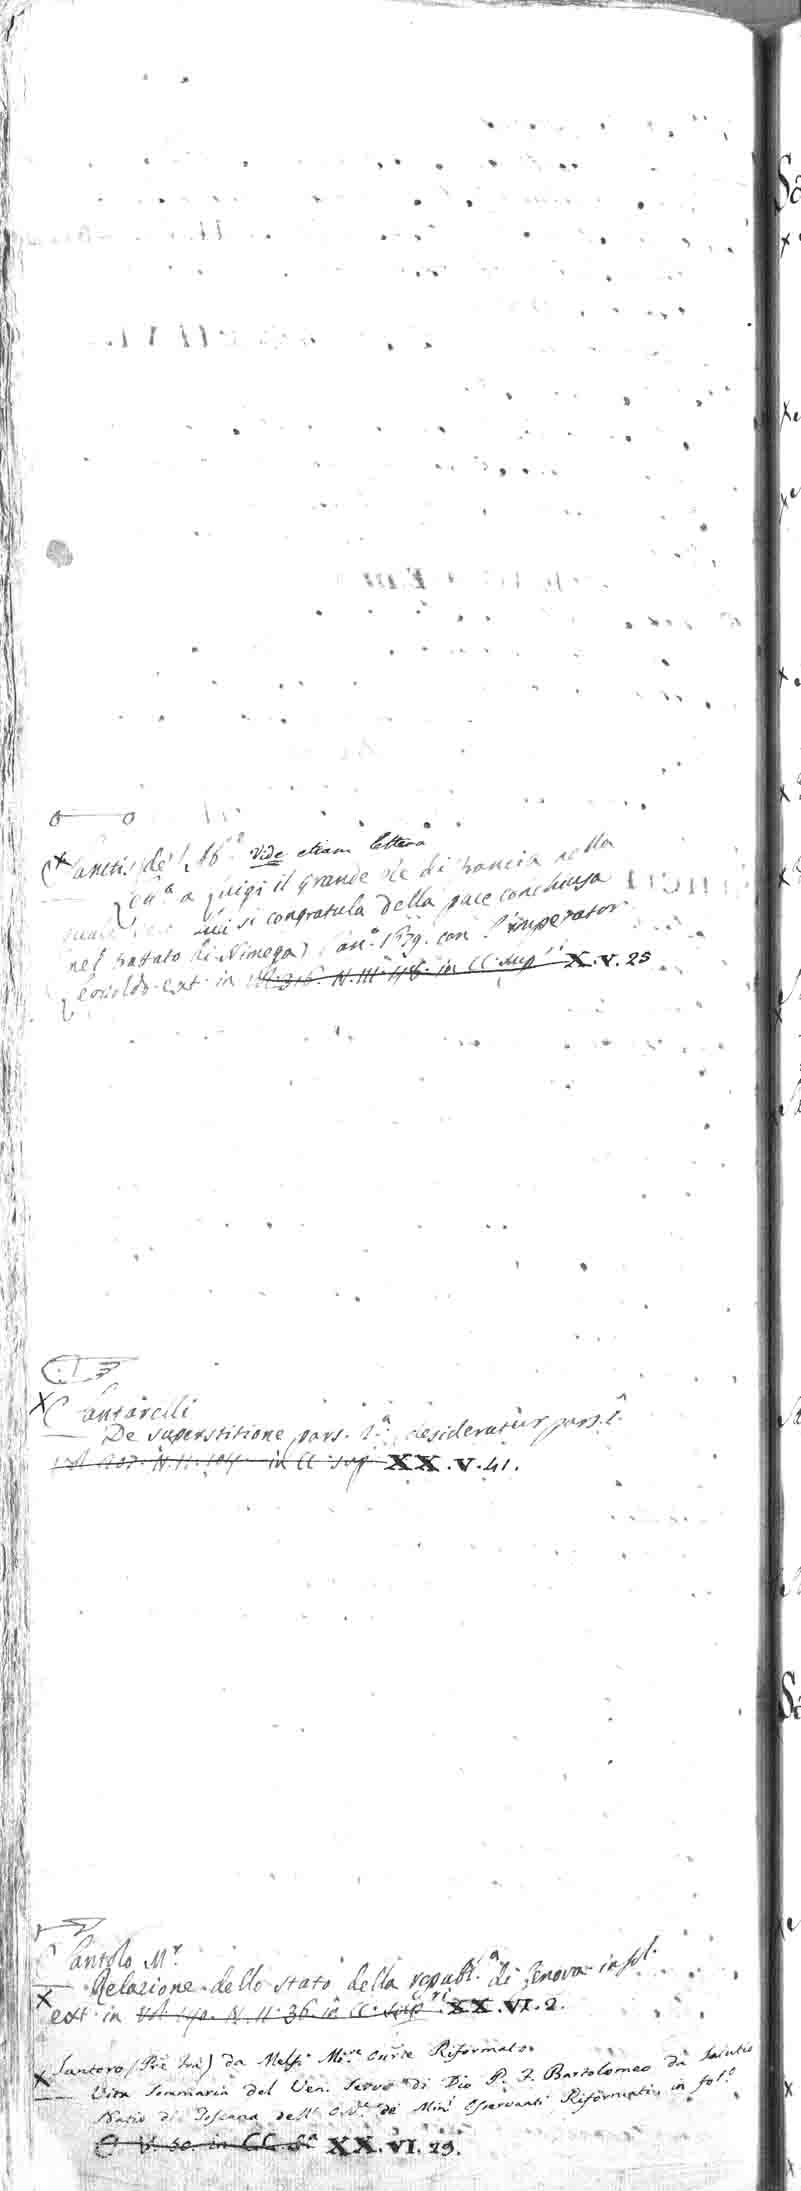 Sanctis (de) Ab.e Vide etiam Lettera
Gen.a a Luigi il Grande Rè di Francia nella
quale lui si congratula della pace conchiusa
nel trattato di Nimega l'an.o 1679. con l'imperator
Leopoldo ext. in Vol. 316. N. III. 46. in CC. sup.ri X.V.25
X Santarelli
De superstitione pars. 2.a desideratur pars.
Vol. N. II. 104. in CC. sup. XX.V.41.
Santolo M.r
Relazione dello stato della republ.a di Genova in fol.
X ext in Vol. 190. N. II. 36. in CC. Sup.ri XX.VI.2.
X Santoro (Frè Frà) da Melfi Curte Riformato.
Vita Sommaria del Ven. Servo di Dio P. F. Bartolomeo da Salutio
Natio di Toscana dell' de Min.i Osservanti Riformati, in fol.o
in CC. S.a XX.VI.29.